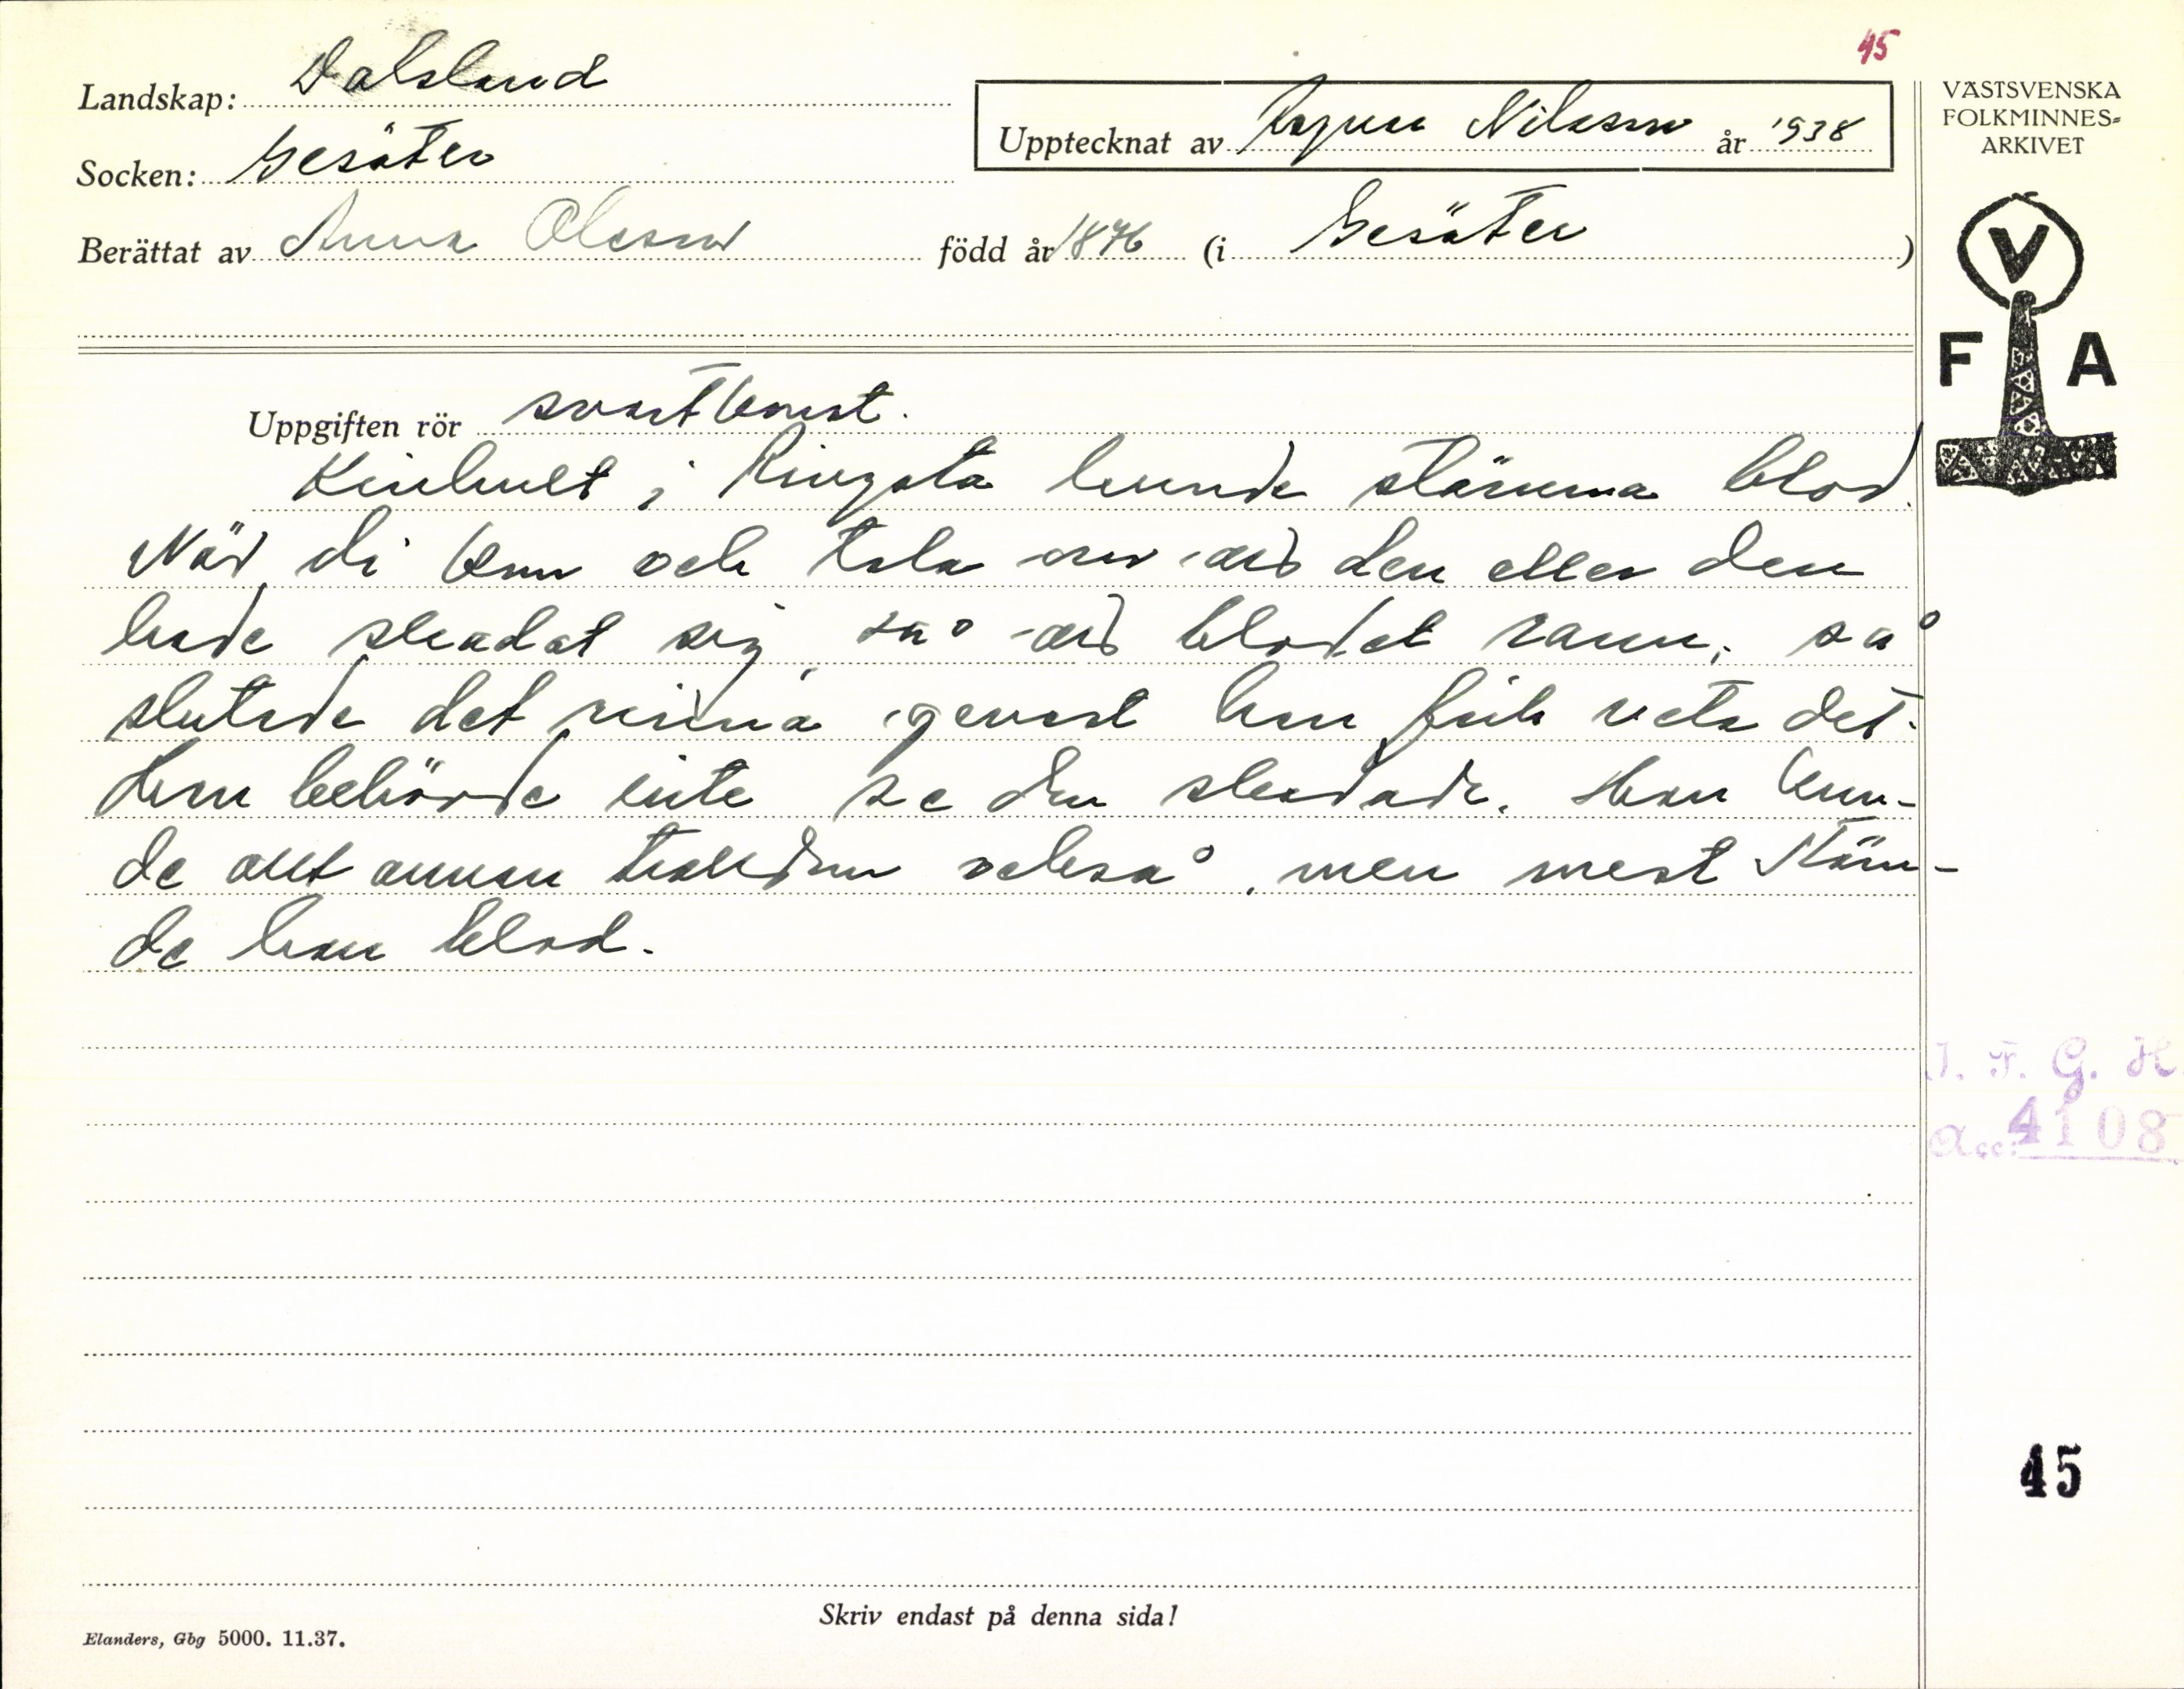 45
Landskap: Dalsland
Socken: Gesäter
Upptecknat av Ragnar Nilsson år 1938
Berättat av Anna Olsson född år 1876 (i Gesäter)
VÄSTSVENSKA
FOLKMINNES=
ARKIVET
V
F A
Uppgiften rör svartkonst.
i kunde stämma blod.
När di kom och tala om att den eller den
hade skadat sig, så att blodet rann, så
slutade det rinna genast han fick veta det.
Han behövde inte se den skadade. Han kun-
de allt annan trolldom också, men mest stäm-
de han blod.
I. F. G. H.
Acc: 4108
45
Skriv endast på denna sida!
Elanders, Gbg 5000. 11.37.